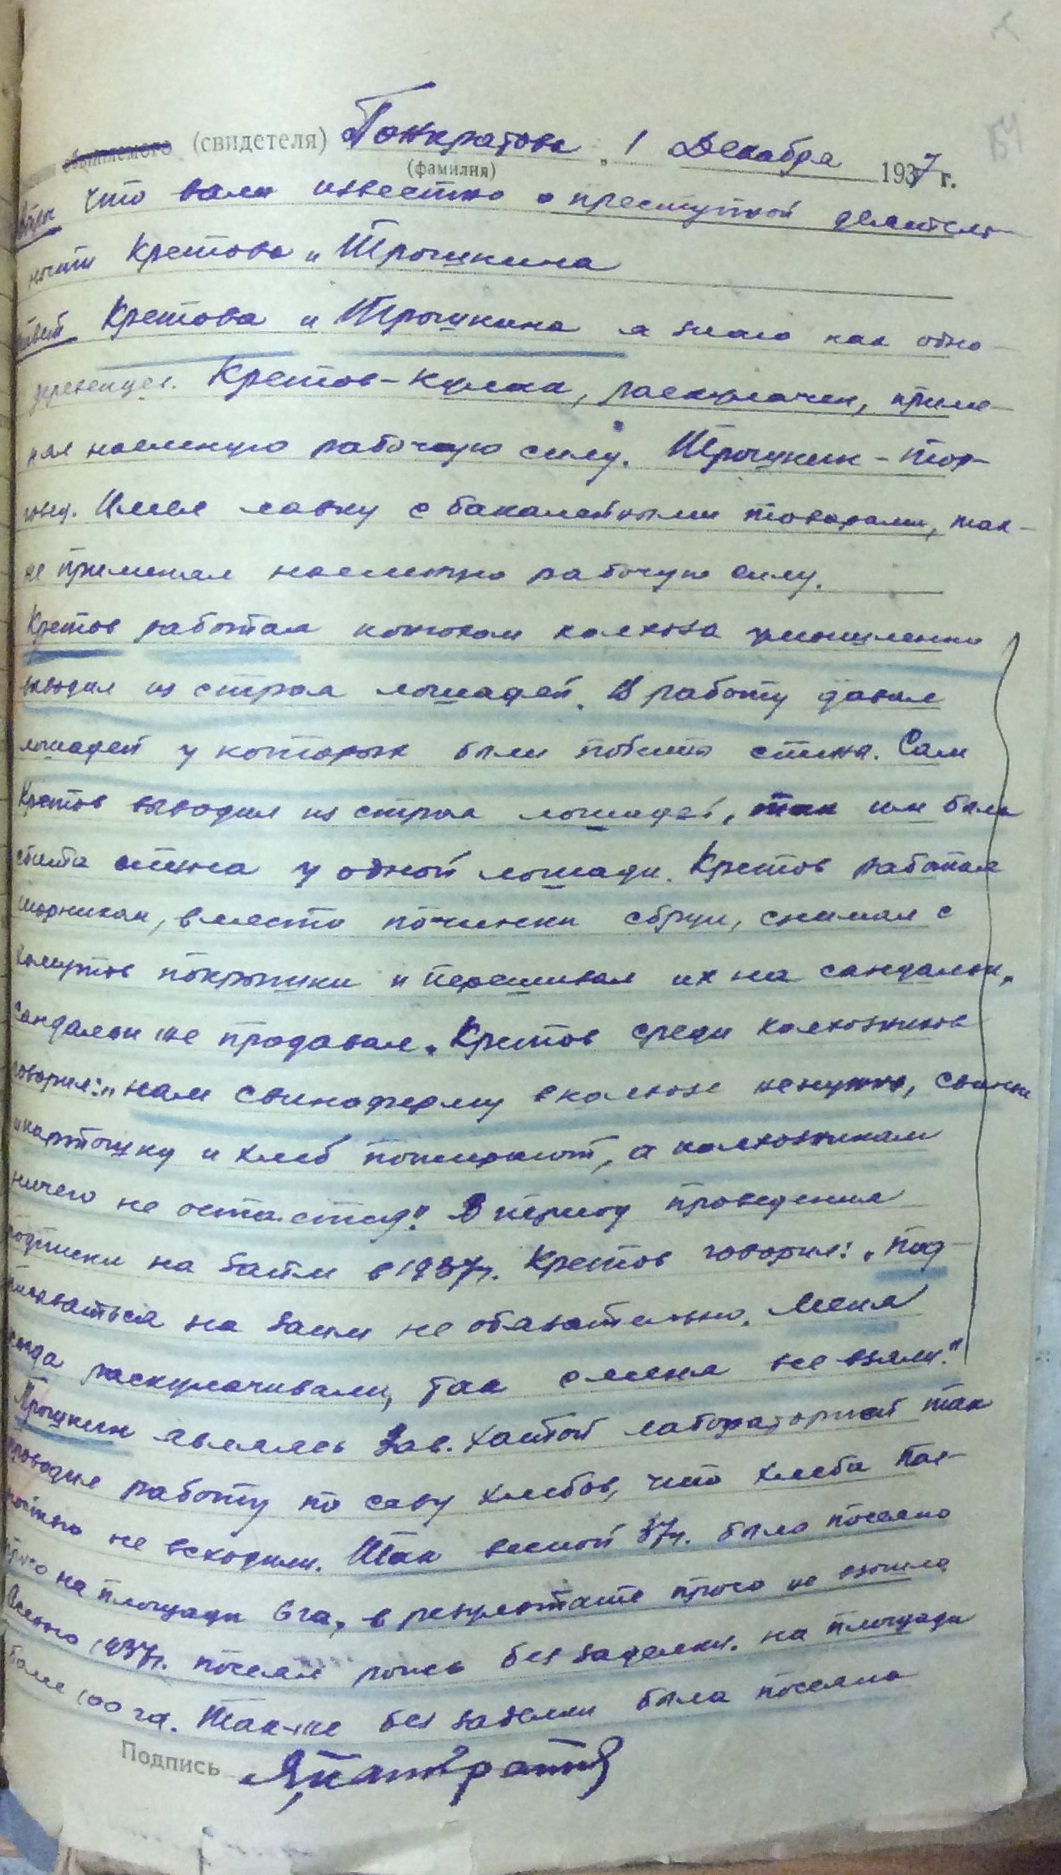 обвиняемого (свидетеля) Панкратова „1 Декабря 1937 г.
(фамилия)
Что вам известно о преступной деятель-
ности Кретова и Трошкина
Кретова и Трошкина я знаю как одно-
деревенцев. Кретов - кулак, раскулачен, приме-
нял наемную рабочую силу. Трошкин - тор-
говец. Имел лавку с бакалейными товарами, так-
же применял наемную рабочую силу.
Кретов работая конюхом колхоза умышленно
выводил из строя лошадей. В работу давал
лошадей у которых были побиты спины. Сам
Кретов выводил из строя лошадей, так им была
сбита спина у одной лошади. Кретов работая
шорником, вместо починки сбруи, снимал с
хомутов покрышки и перешивал их на сандалии,
сандалии же продавал. Кретов среди колхозников
говорил: „нам свиноферму в колхозе не нужно, свиньи
и картошку и хлеб пожирают, а колхозникам
ничего не остается". В период проведения
подписки на заем в 1937 г. Кретов говорил: „Под-
писываться на заем не обязательно. Меня
когда раскулачивали, так с меня все взяли."
Трошкин являясь Зав. Хатой лабораторией так
проводил работу по севу хлебов, что хлеба пол-
ностью не всходили. Так весной 37 г. было посеяно
просо на площади 6 га, в результате просо не взошло.
Осенью 1937 г. посеял рожь без заделки на площади
более 100 га. Так-же без заделки была посеяна
Подпись